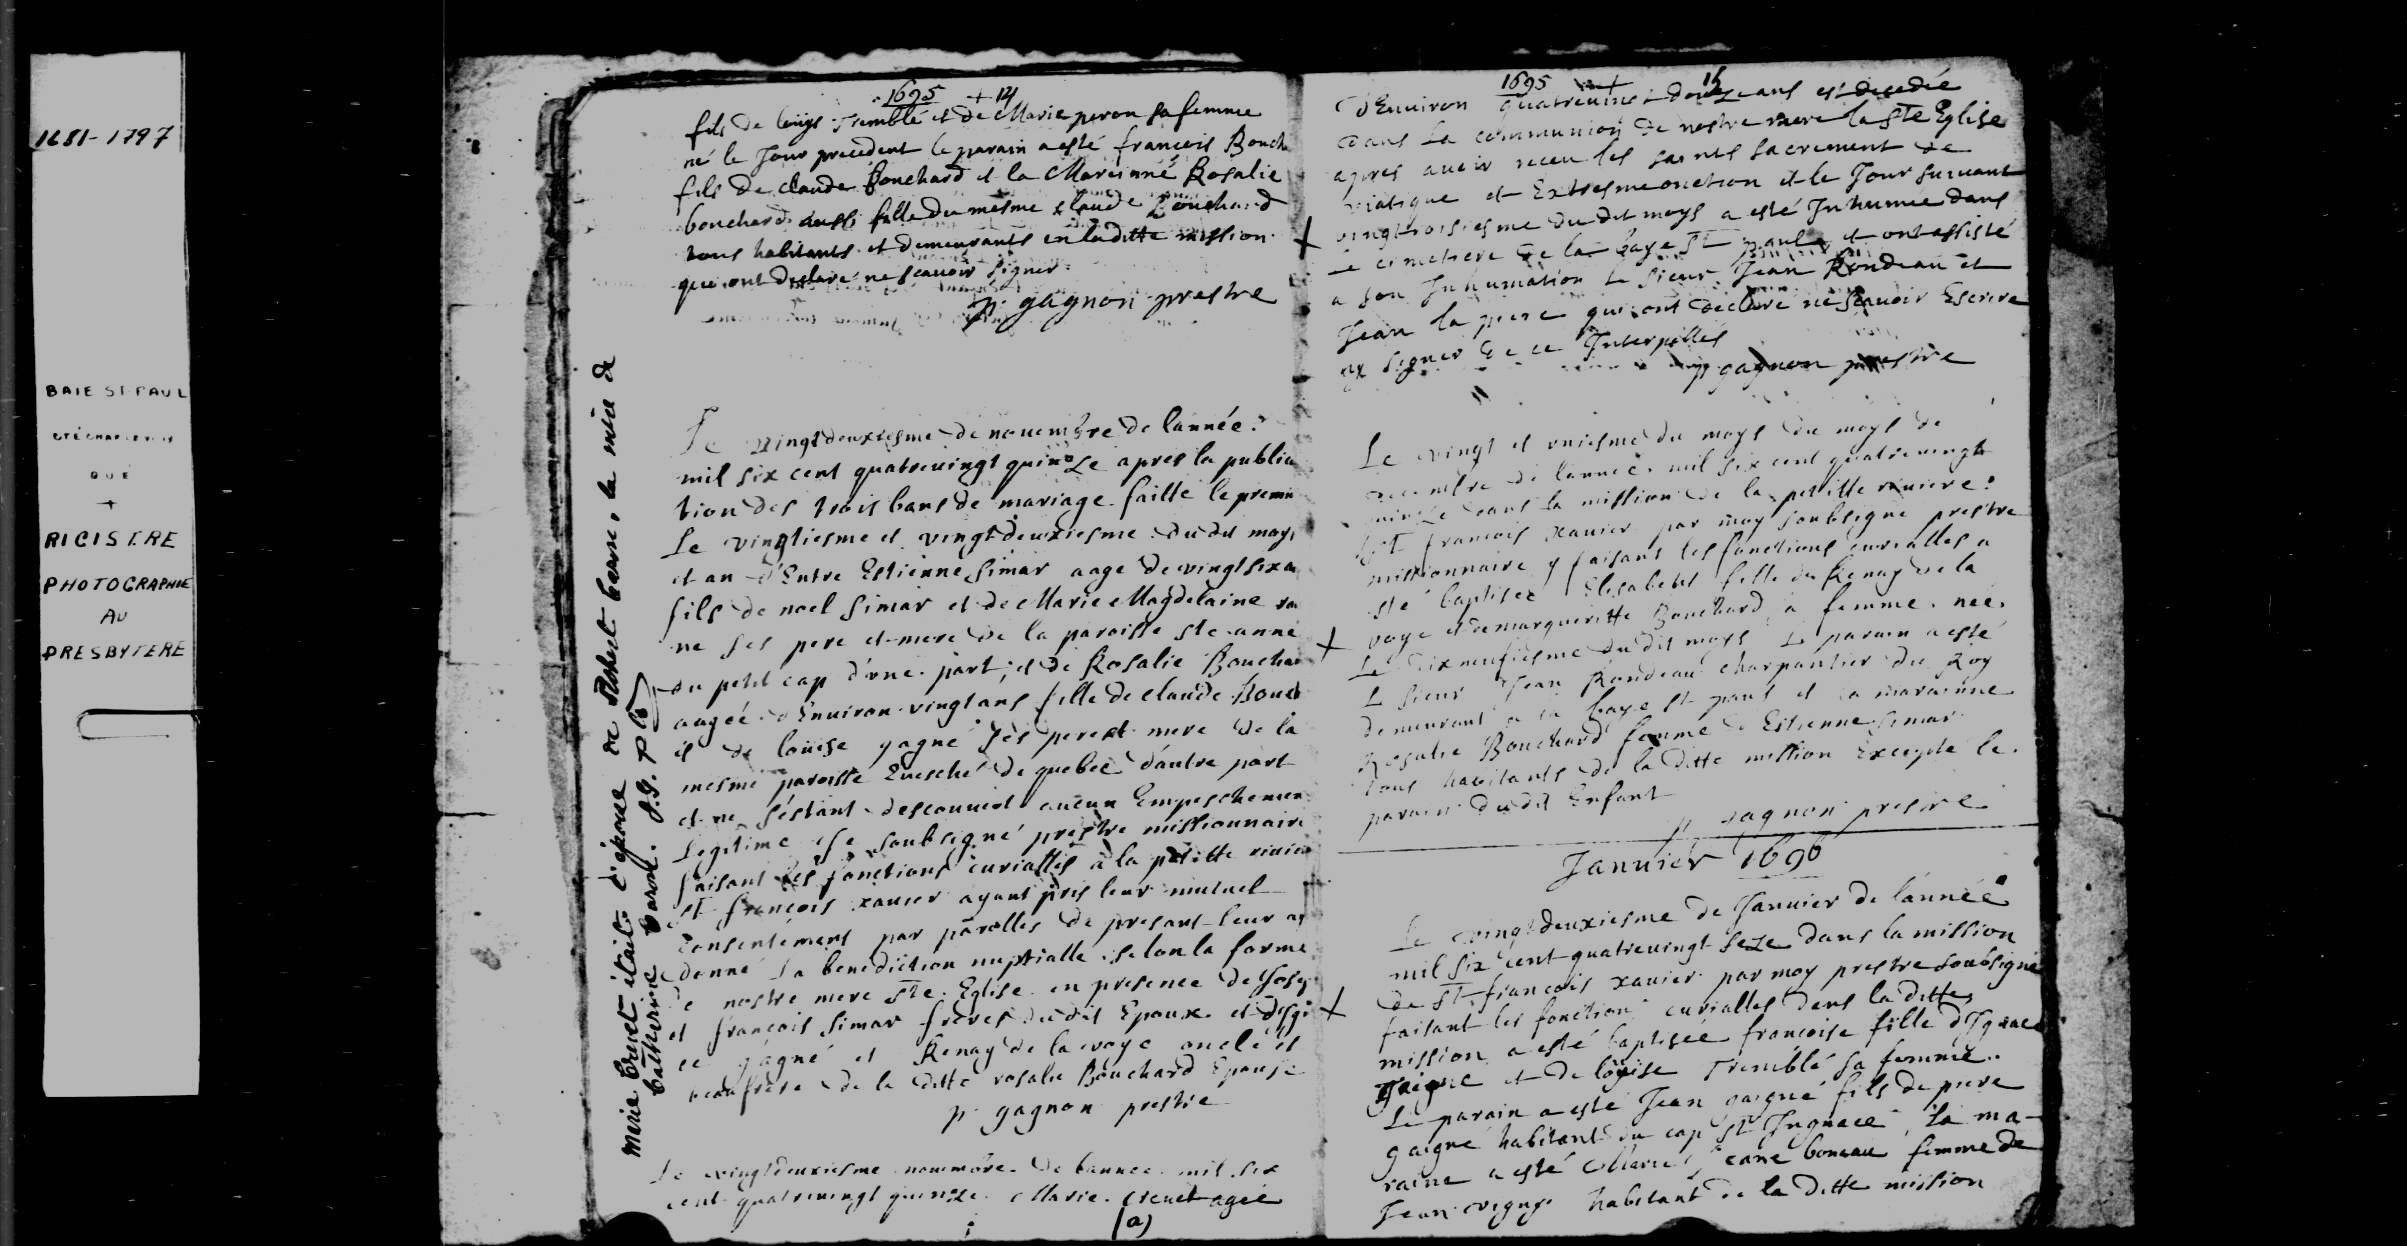 1681-1797
BAIE ST PAUL
CTÉ CHARLEVOIX
QUÉ
+
RIGISTRE
PHOTOGRAPHIE
AU
PRESBYTERE
1695 + 14
fils de louys Tremblé et de Marie peron sa femme
né le Jour precedent le parain a esté francois Bouch
fils de claude Bouchard et la Marainné Rosalie
bouchard aussi fille du mesme claude Bouchard
tous habitants et demeurants en la ditte mission
qui ont declaré ne scauoir signer
p. gagnon prestre
Le vingtdeuxiesme de nouembre de lannée
mil six cent quatreuingt quinze apres la publica
tion des trois bans de mariage faitte le premie
Le vingtiesme et vingtdeuxiesme du dit moys
et an d'Entre Estienne Simar aagé de vingt six a
fils de noel Simar et de Marie Magdelaine ra
ne ses pere et mere de la paroisse ste anne
du petit cap d'vne part, et de Rosalie Bouchar
aagée d'Enuiron vingt ans fille de claude Bouch
et de louise gagné ses pere et mere de la
mesme paroisse Euesché de quebec d'autre part
et ne s'estant descouuert aucun Empeschemen
Legitime Je soubsigné prestre missionnaire
faisant les fonctions curialles à la petitte riuier
st françois xauier ayant pris leur mutuel
consentement par parolles de presant leur ay
donné la benediction nuptialle selon la forme
de nostre mere Ste Eglise en presence de Josep
et françois Simar freres du dit Epoux et d'Igna
ce gagné et Renay de la voye oncle et
beaufrere de la ditte rosalie Bouchard Epouse
p. gagnon prestre
Le vingtdeuxiesme nouembre de lannee mil six
cent quatreuingt quinze Marie Creuet agée
(a)
Marie Crevet était l'épouse de Robert Caron, la mère de
Catherine Caron.
1695 15
d'Enuiron quatreuingt douze ans est decedée
dans la communion de nostre mere la Ste Eglise
apres auoir receu les saints sacrement de
viatique et Extresmeonction et le Jour suiuant
+ vingtroisiesme du dit moys a esté Inhumee dans
le cimetiere de la baye St paul et ont assisté
a son Inhumation le sieur Jean Rondeau et
Jean la piere qui ont declaré ne scauoir Escrire
ny signer de ce Interpellés
p. gagnon prestre
Le vingt et vniesme du moys du moys de
decembre de lannee mil six cent quatreuingt
quinze dans la mission de la petitte riuiere
St francois xauier par moy soubsigné prestre
missionnaire y faisant les fonctions curialles a
esté baptisee Elisabeth fille de Renay de la
+ voye et de margueritte Bouchard sa femme nee
Le dixneufiesme du dit moys Le parain a esté
Le sieur Jean Rondeau charpantier du Roy
demeurant a la baye St paul et la marainne
Rosalie Bouchard femme d'Estienne Simar
tous habitants de la ditte mission Excepté le
parain du dit Enfant
p. gagnon prestre
Januier 1696
Le vingtdeuxiesme de Januier de lannée
mil six cent quatreuingt seze dans la mission
de St françois xauier par moy prestre soubsigné
+ faisant les fonction curialles dans la ditte
mission a esté baptisée francoise fille d'Ignace
gaigné et de loyise Tremblé sa femme
Le parain a esté Jean gaigné fils de piere
gaigné habitant du cap St Ingnace, la ma-
raine a esté Marie Jeane boneau femme de
Jean habitant de la ditte mission